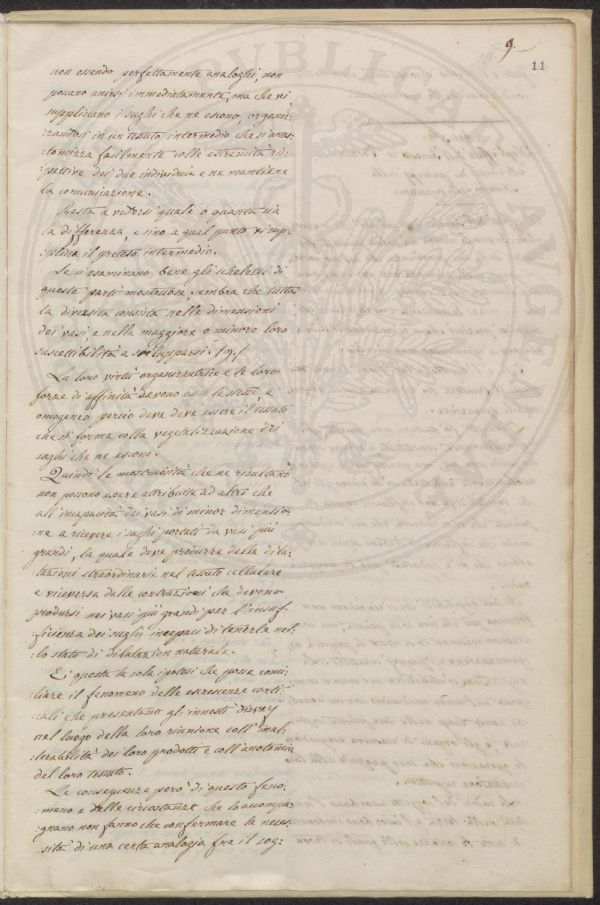 9.
11
non essendo perfettamente analoghi, non
possano unirsi immediatamente, ma che vi
suppliscano i sughi che ne escono, organiz:
:zandosi in un tessuto intermedio che si anas:
:tomizza facilmente colle estremità ris:
:pettive dei due individui e ne mantiene
la comunicazione.
Resta a vedersi quale o quanta sia
la differenza, e sino a qual punto vi sup:
:plisca il preteso intermedio.
Se si esaminano bene gli scheletri di
queste parti mostruose, sembra che tutta
la diversità consista nelle dimensioni
dei vasi, e nella maggiore o minore loro
suscettibilità a svilupparsi.
La loro virtù organizzatrice e le loro
forze di affinità devono esser le stesse, e
omogeneo perciò deve deve essere il tessuto
che si forma colla vegetalizzazione dei
sughi che ne escono.
Quindi le mostruosità che ne risultano
non possono essere attribuite ad altri che
all'incapacità dei vasi di minor dimensio:
:ne a ricevere i sughi portati da vasi più
grandi, la quale deve produrre delle dila:
:tazioni straordinarie nel tessuto cellulare
e viceversa dalle contrazioni che devono
prodursi nei vasi più grandi per l'insuf:
:ficienza dei sughi incapaci di tenerle nel:
:lo stato di dilatazion naturale.
E' questa la sola ipotesi che possa conci:
:liare il fenomeno delle escrescenze corti:
:cali che presentano gli innesti
nel luogo della loro riunione coll'inal:
:terabilità dei loro prodotti e coll'anatomia
del loro tessuto.
Le conseguenze però di questo feno:
:meno e delle circostanze che lo accompa:
:gnano non fanno che confermare la neces:
:sità di una certa analogia fra il sog: